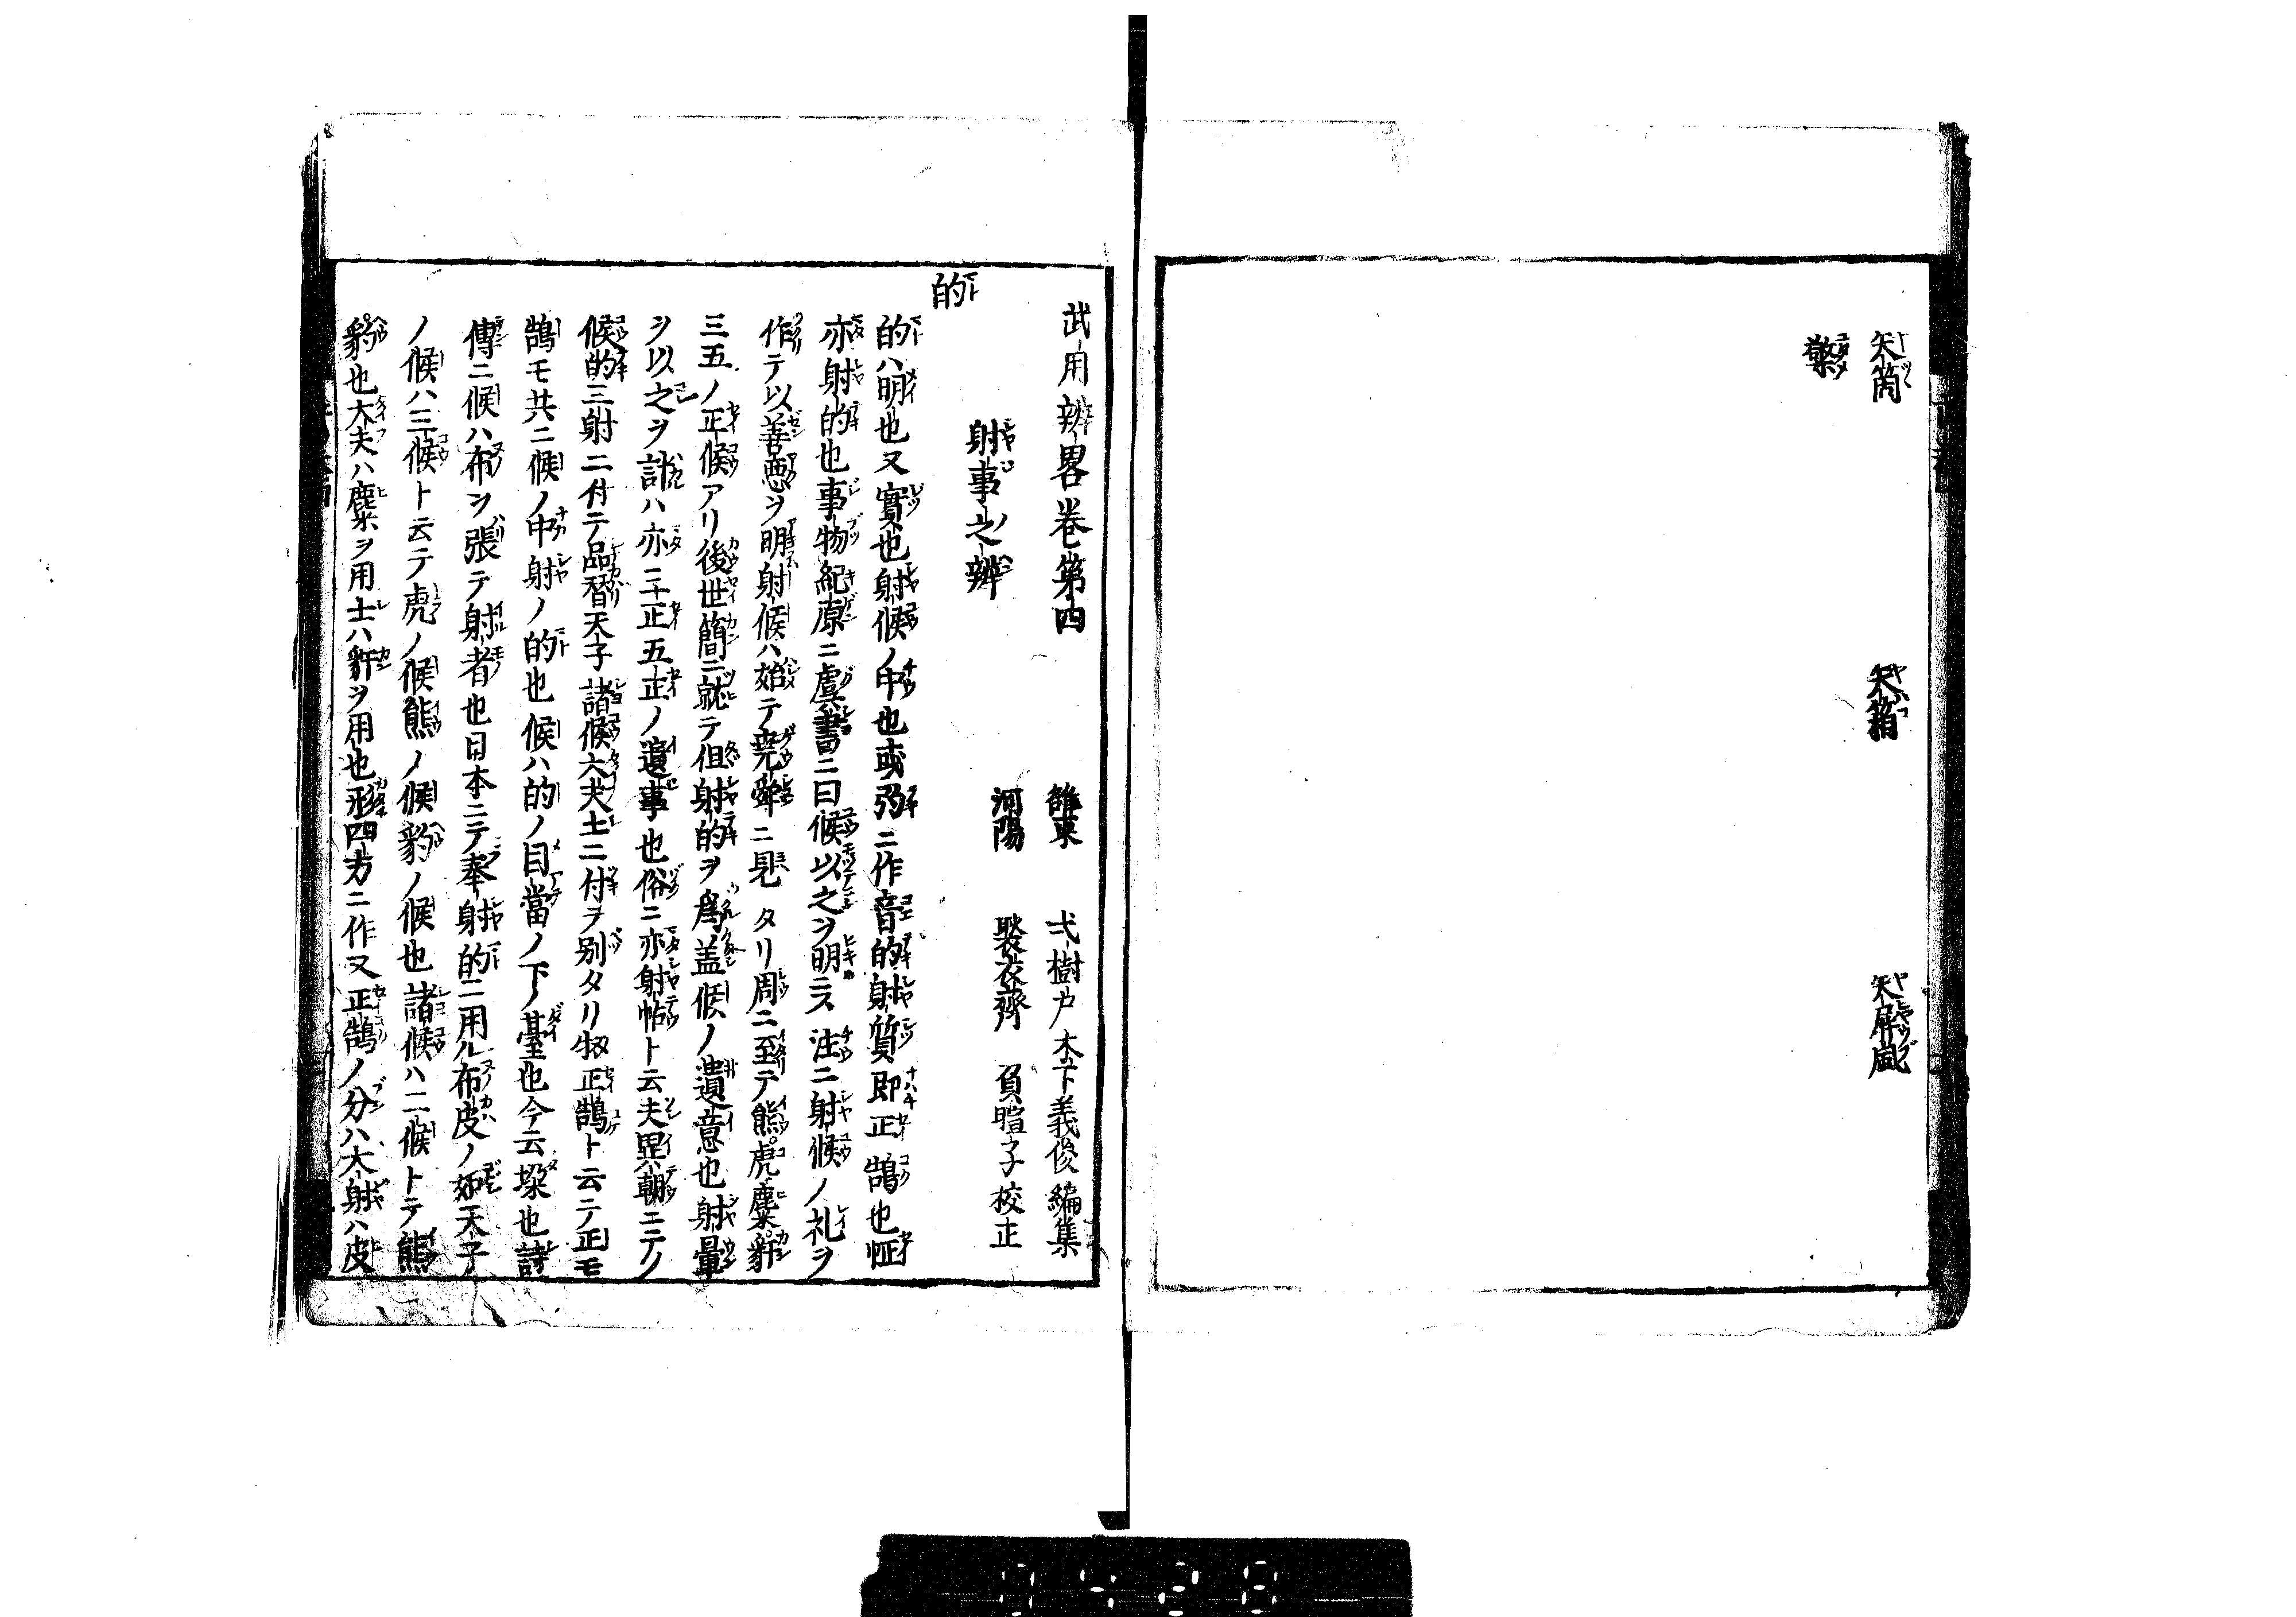 矢筒 矢箱 矢屏風
檠
武用辨畧卷第四
雒東 弌樹戸 木下義俊 編集
射事之辨
河陽 褧衣齊 負暄子 校正
的
的ハ明也又實也射候ノ中也或芀ニ作音的射質即正鵠也怔
亦射的也事物紀原ニ虞書ニ曰候以之ヲ明ニス注ニ射候ノ礼ヲ
作テ以善悪ヲ明射候ハ始テ堯舜ニ見タリ周ニ至テ熊虎麋豻
三五ノ正候アリ後世簡ニ就テ但射的ヲ為ノ蓋候ノ遺意也射量
ヲ以之ヲ計ハ亦三正五正ノ遺事也俗ニ亦射帖ト云夫異朝ニテノ
候的三射ニ付テ品替天子諸候大夫士ニ付ヲ別タリ扨正鵠ト云テ正モ
鵠モ共ニ候ノ中射ノ的也候ハ的ノ目當ノ下ノ臺也今云垜也詩
傳ニ候ハ布ヲ張テ射者也日本ニテ奉射的ニ用ル布皮ノ如天子
ノ候ハ三候ト云テ虎ノ候熊ノ候豹ノ候也諸候ハ二候トテ熊
豹也大夫ハ麋ヲ用士ハ豻ヲ用也形四方ニ作又正鵠ノ分ハ大射ハ皮